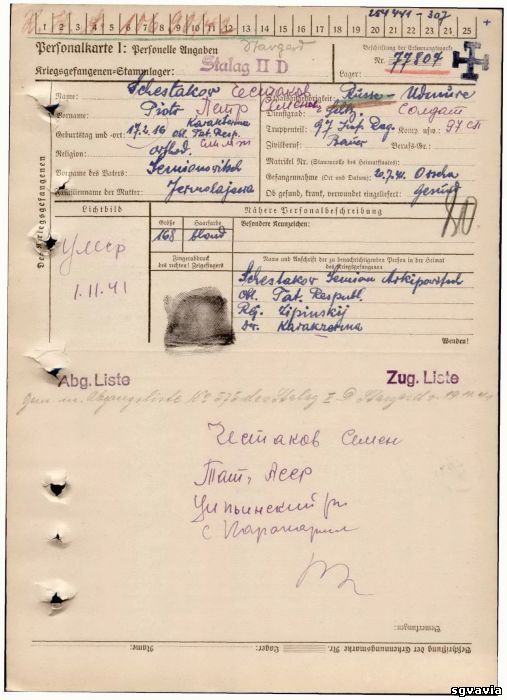 254441-307
1 2 3 4 5 6 7 8 9 10 11 12 13 14 15 16 17 18 19 20 21 22 23 24 25
Personalkarte I: Personelle Angaben
Stargard
Beschriftung der Erkennungsmarke
Kriegsgefangenen-Stammlager: Stalag II D
Nr. 77807
Lager:
Des Kriegsgefangenen
Name: Schestakov Шестаков
Staatsangehörigkeit: Russe - Udmurte
Vorname: Piotr Петр Семенов
Dienstgrad: Солдат
Geburtstag und -ort: 17.2.16 Karakterma
Obl. Tat. Resp.
Truppenteil: 97 Inf. Reg. Komp. usw.: 97 СП
Religion: orthod.
Zivilberuf: Bauer Berufs-Gr.:
Matrikel Nr. (Stammrolle des Heimatstaates):
Vorname des Vaters: Semionovitsch
Gefangennahme (Ort und Datum): 20.7.41. Orscha
Familienname der Mutter: Jermolajewa
Ob gesund, krank, verwundet eingeliefert: Gesund
Lichtbild
Nähere Personalbeschreibung
Größe
Haarfarbe
Besondere Kennzeichen:
168 blond
умер
1.11.41
Fingerabdruck
des rechten! Zeigefingers
Name und Anschrift der zu benachrichtigenden Person in der Heimat
des Kriegsgefangenen
Schestakov Semion Arkipovitsch
Obl. Tat. Republ.
Rej. Zipinskij
Karakterma
Wenden!
Abg. Liste
Zug. Liste
Abgangsliste No 575 des Stalag II D Stargard
Шестаков Семен
Тат. Асср
Ципьинский
с
Bemerkungen:
Name:
Beschriftung der Erkennungsmarke Nr.
sgvavia